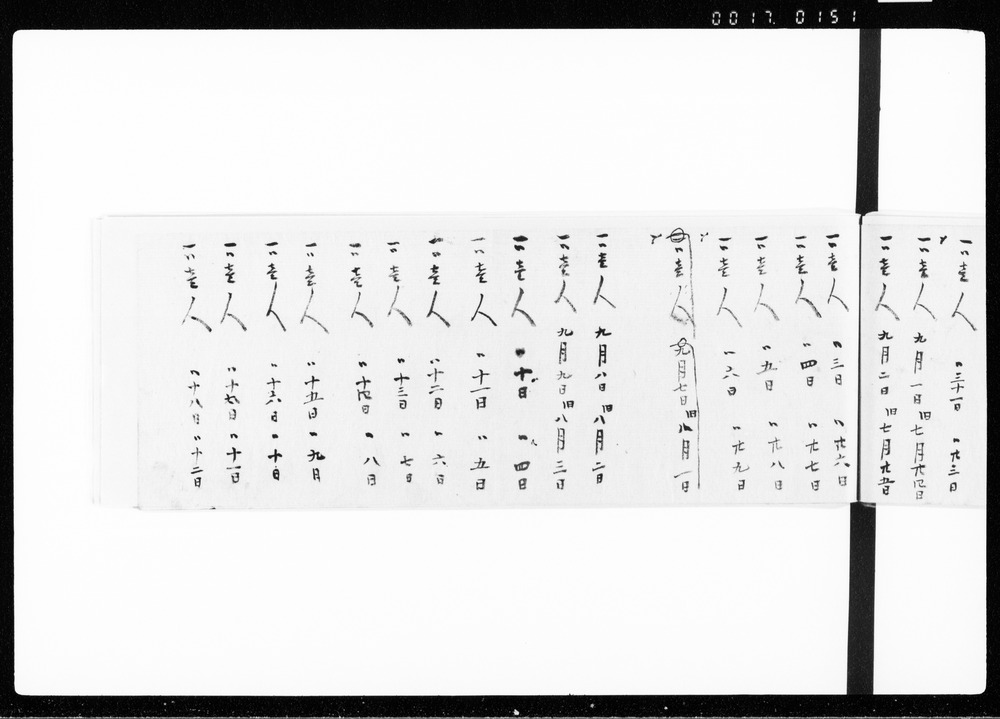 0017. 0151
一〃壱人 〃三十一日 〃廿三日
一〃壱人 九月一日旧七月廿四日
一〃壱人 九月二日旧七月廿五日
一〃壱人 〃三日 〃廿六日
一〃壱人 〃四日 〃廿七日
一〃壱人 〃五日 〃廿八日
一〃壱人 〃六日 〃廿九日
一〃壱人 九月七日旧八月一日
一〃壱人 九月八日旧八月二日
一〃壱人 九月九日旧八月三日
一〃壱人 〃十日 〃四日
一〃壱人 〃十一日 〃五日
一〃壱人 〃十二日 〃六日
一〃壱人 〃十三日 〃七日
一〃壱人 〃十四日 〃八日
一〃壱人 〃十五日 〃九日
一〃壱人 〃十六日 〃十日
一〃壱人 〃十七日 〃十一日
一〃壱人 〃十八日 〃十二日